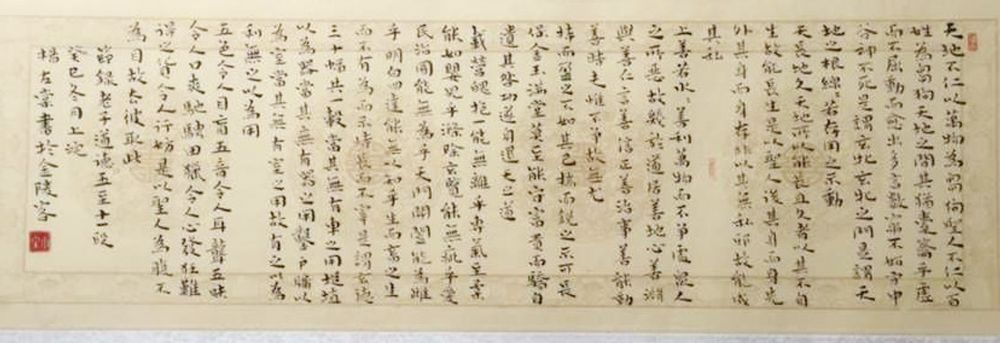 天地不仁以萬物為芻狗聖人不仁以百
姓為芻狗天地之間其猶橐籥乎虛
而不屈動而愈出多言數窮不如守中
谷神不死是謂玄牝玄牝之門是謂天
地之根綿綿若存用之不動
天長地久天地所以能長且久者以其不自
生故能長生是以聖人後其身而身先
外其身而身存非以其無私邪故能成
其私
上善若水水善利萬物而不爭處眾人
之所惡故幾於道居善地心善淵
與善仁言善信正善治事善能動
善時夫惟不爭故無尤
持而盈之不如其已揣而銳之不可長
保金玉滿堂莫之能守富貴而驕自
遺其咎功遂身退天之道
載營魄抱一能無離乎專氣至柔
能如嬰兒乎滌除玄覽能無疵乎愛
民治國能無為乎天門開闔能為雌
乎明白四達能無以知乎生而畜之生
而不有為而不恃長而不宰是謂玄德
三十輻共一轂當其無有車之用埏埴
以為器當其無有器之用鑿戶牖以
為室當其無有室之用故有之以為
利無之以為用
五色令人目盲五音令人耳聾五味
令人口爽馳騁田獵令人心發狂難
得之貨令人行妨是以聖人為腹不
為目故去彼取此
節錄老子道德五至十一段
癸巳冬月上浣
棠書於金陵客